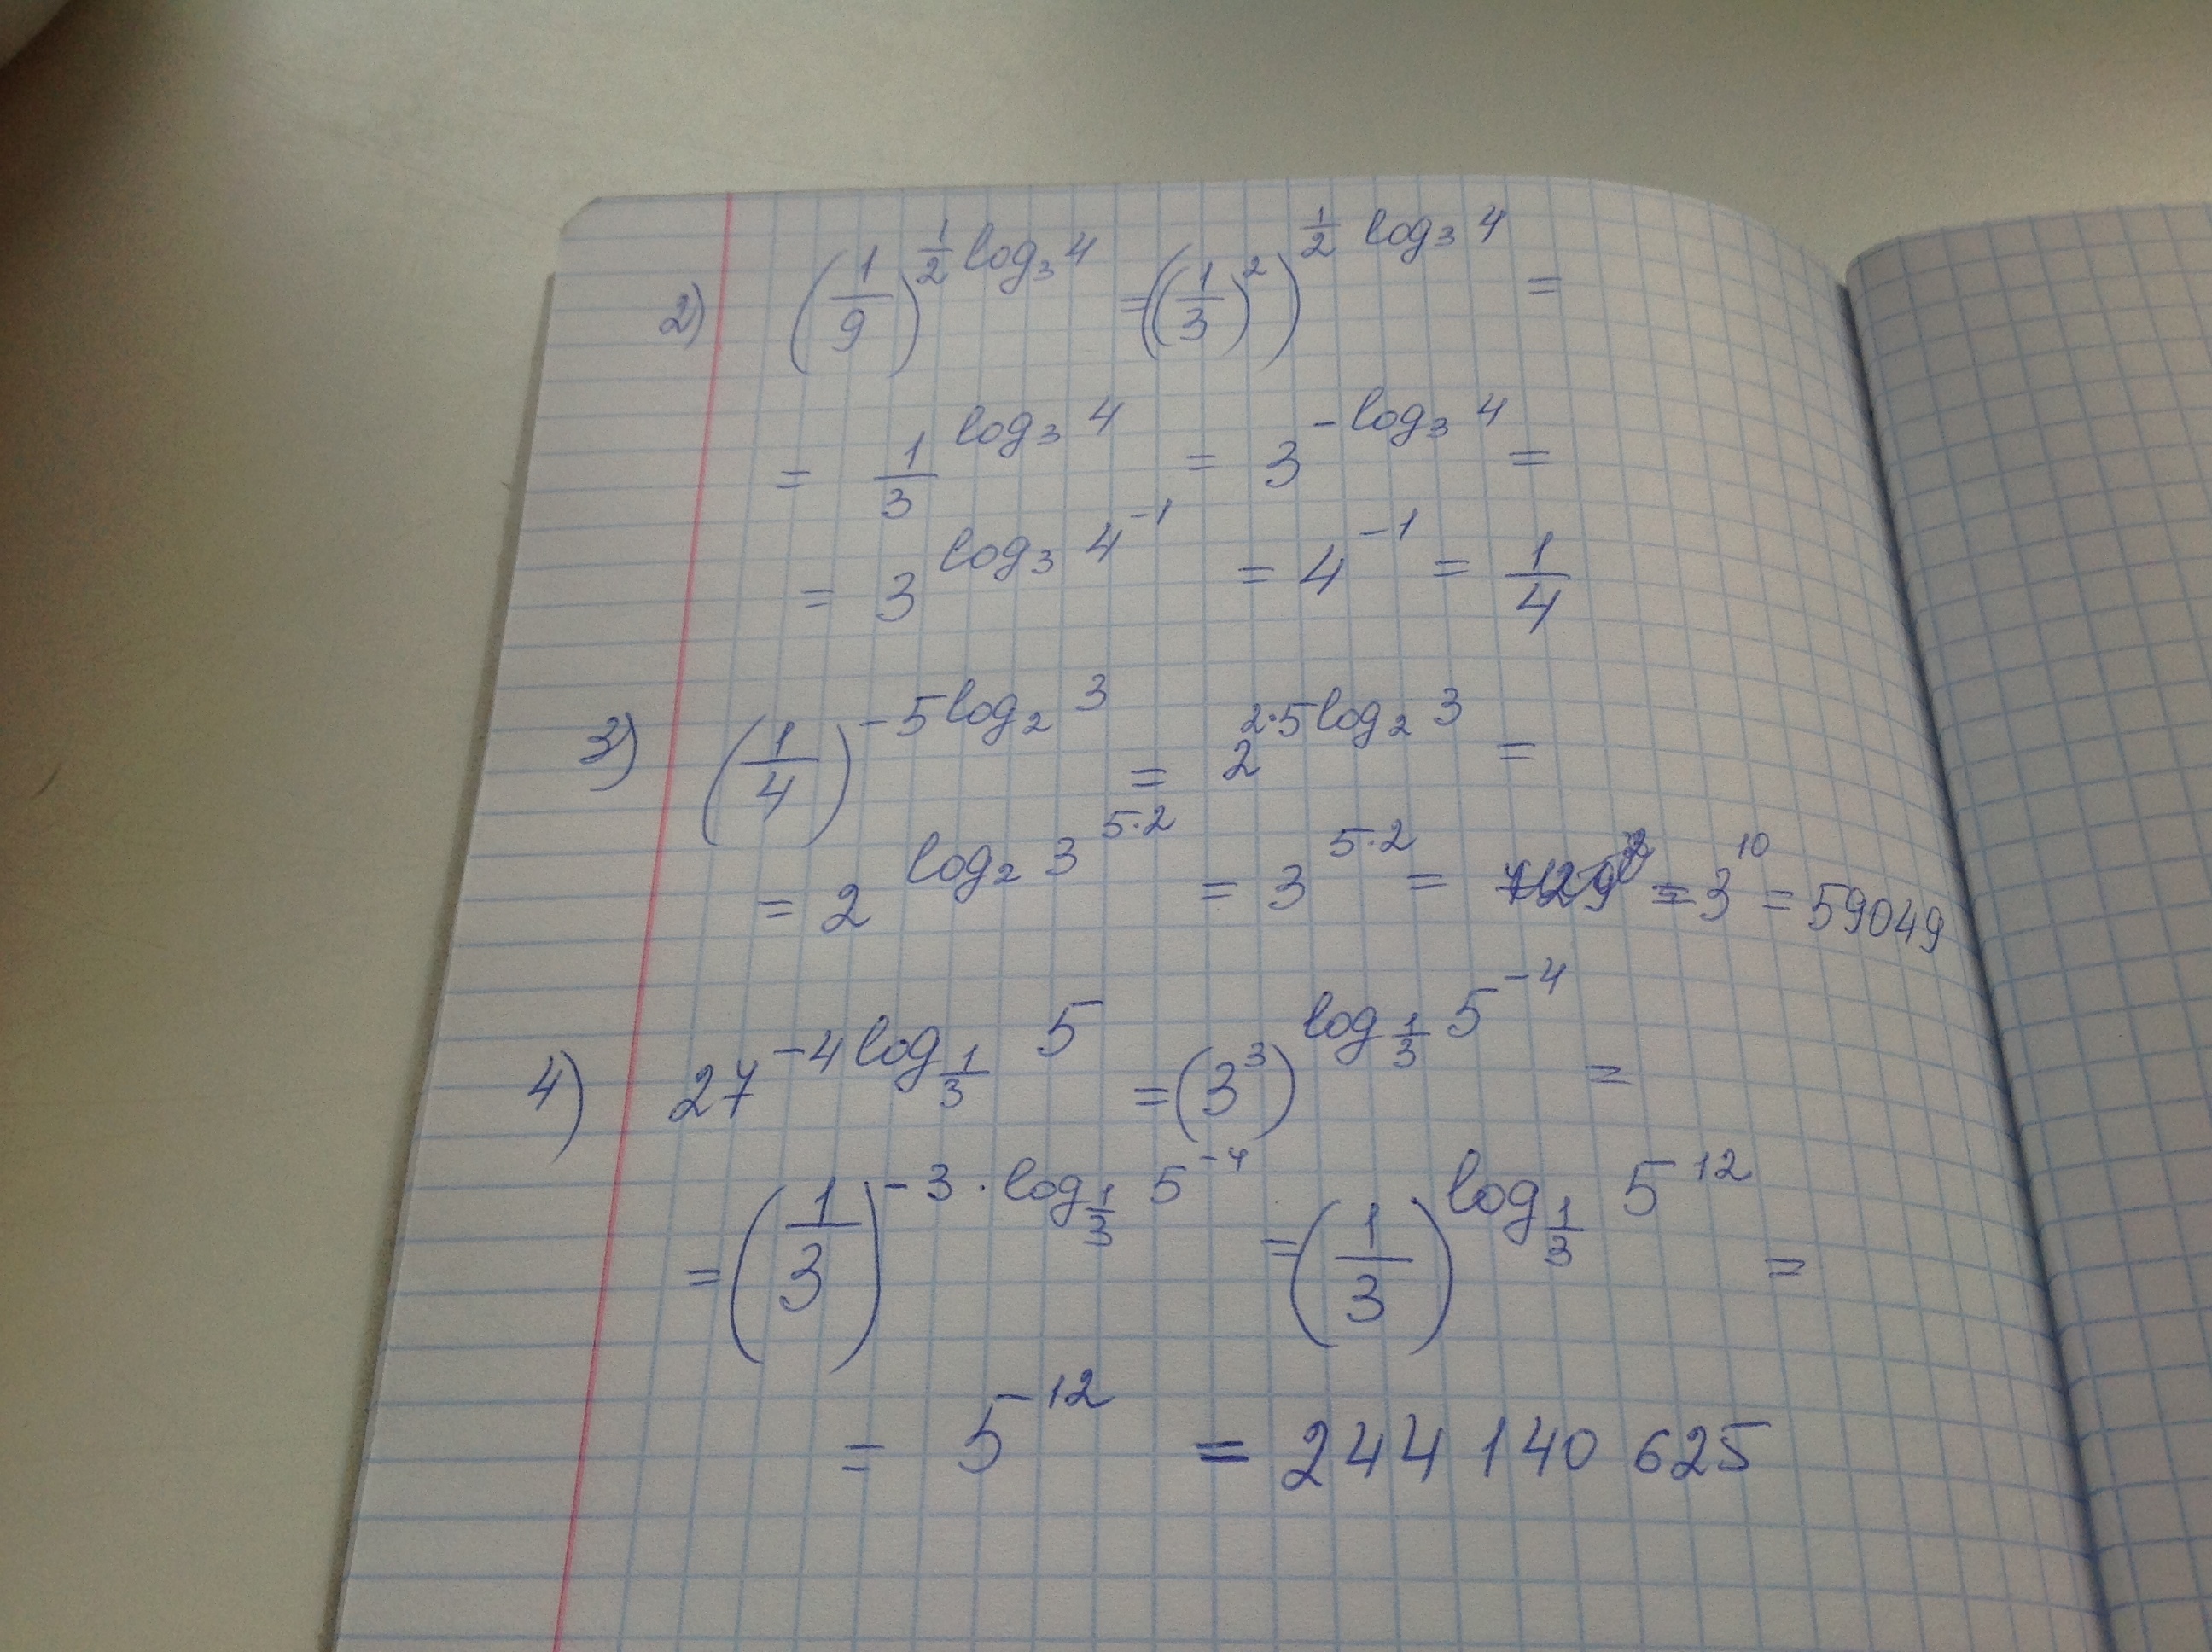 2) (1/9)^(1/2 log₃ 4) = ((1/3)²)^(1/2 log₃ 4) =
= 1/3^(log₃ 4) = 3^(-log₃ 4) =
= 3^(log₃ 4^(-1)) = 4^(-1) = 1/4
3) (1/4)^(-5 log₂ 3) = 2^(2·5 log₂ 3) =
= 2^(log₂ 3^(5·2)) = 3^(5·2) = = 3^10 = 59049
4) 27^(-4 log_(1/3) 5) = (3³)^(log_(1/3) 5^(-4)) =
= (1/3)^(-3 · log_(1/3) 5^(-4)) = (1/3)^(log_(1/3) 5^12) =
= 5^12 = 244 140 625